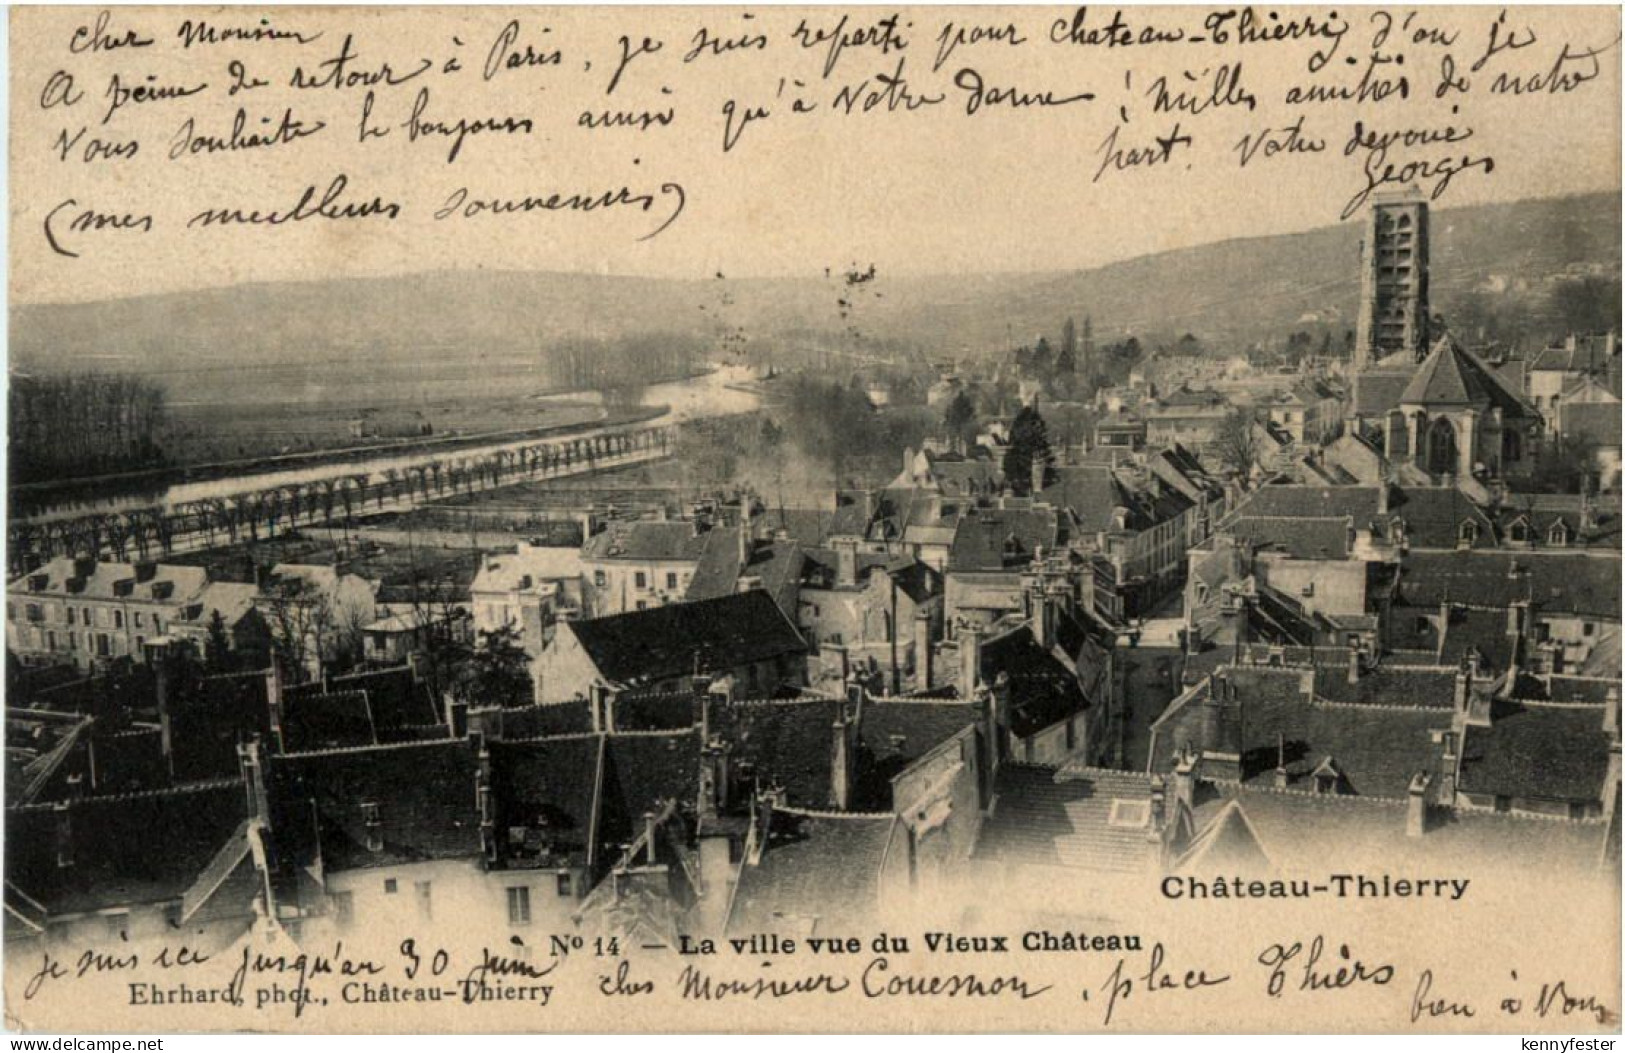 cher Monsieur
A peine de retour à Paris, je suis reparti pour Chateau-Thierri d'ou je
vous souhaite le bonjours ainsi qu'à Votre Dame ! Milles amitiés de notre
part. Votre devoué
Georges
(mes meilleurs souvenirs)
Château-Thierry
Nº 14 — La ville vue du Vieux Château
je suis ici jusqu'au 30 juin chez Monsieur Couesnon, place Thiers
Ehrhard, phot., Château-Thierry
bien à Vous
www.delcampe.net
kennyfester